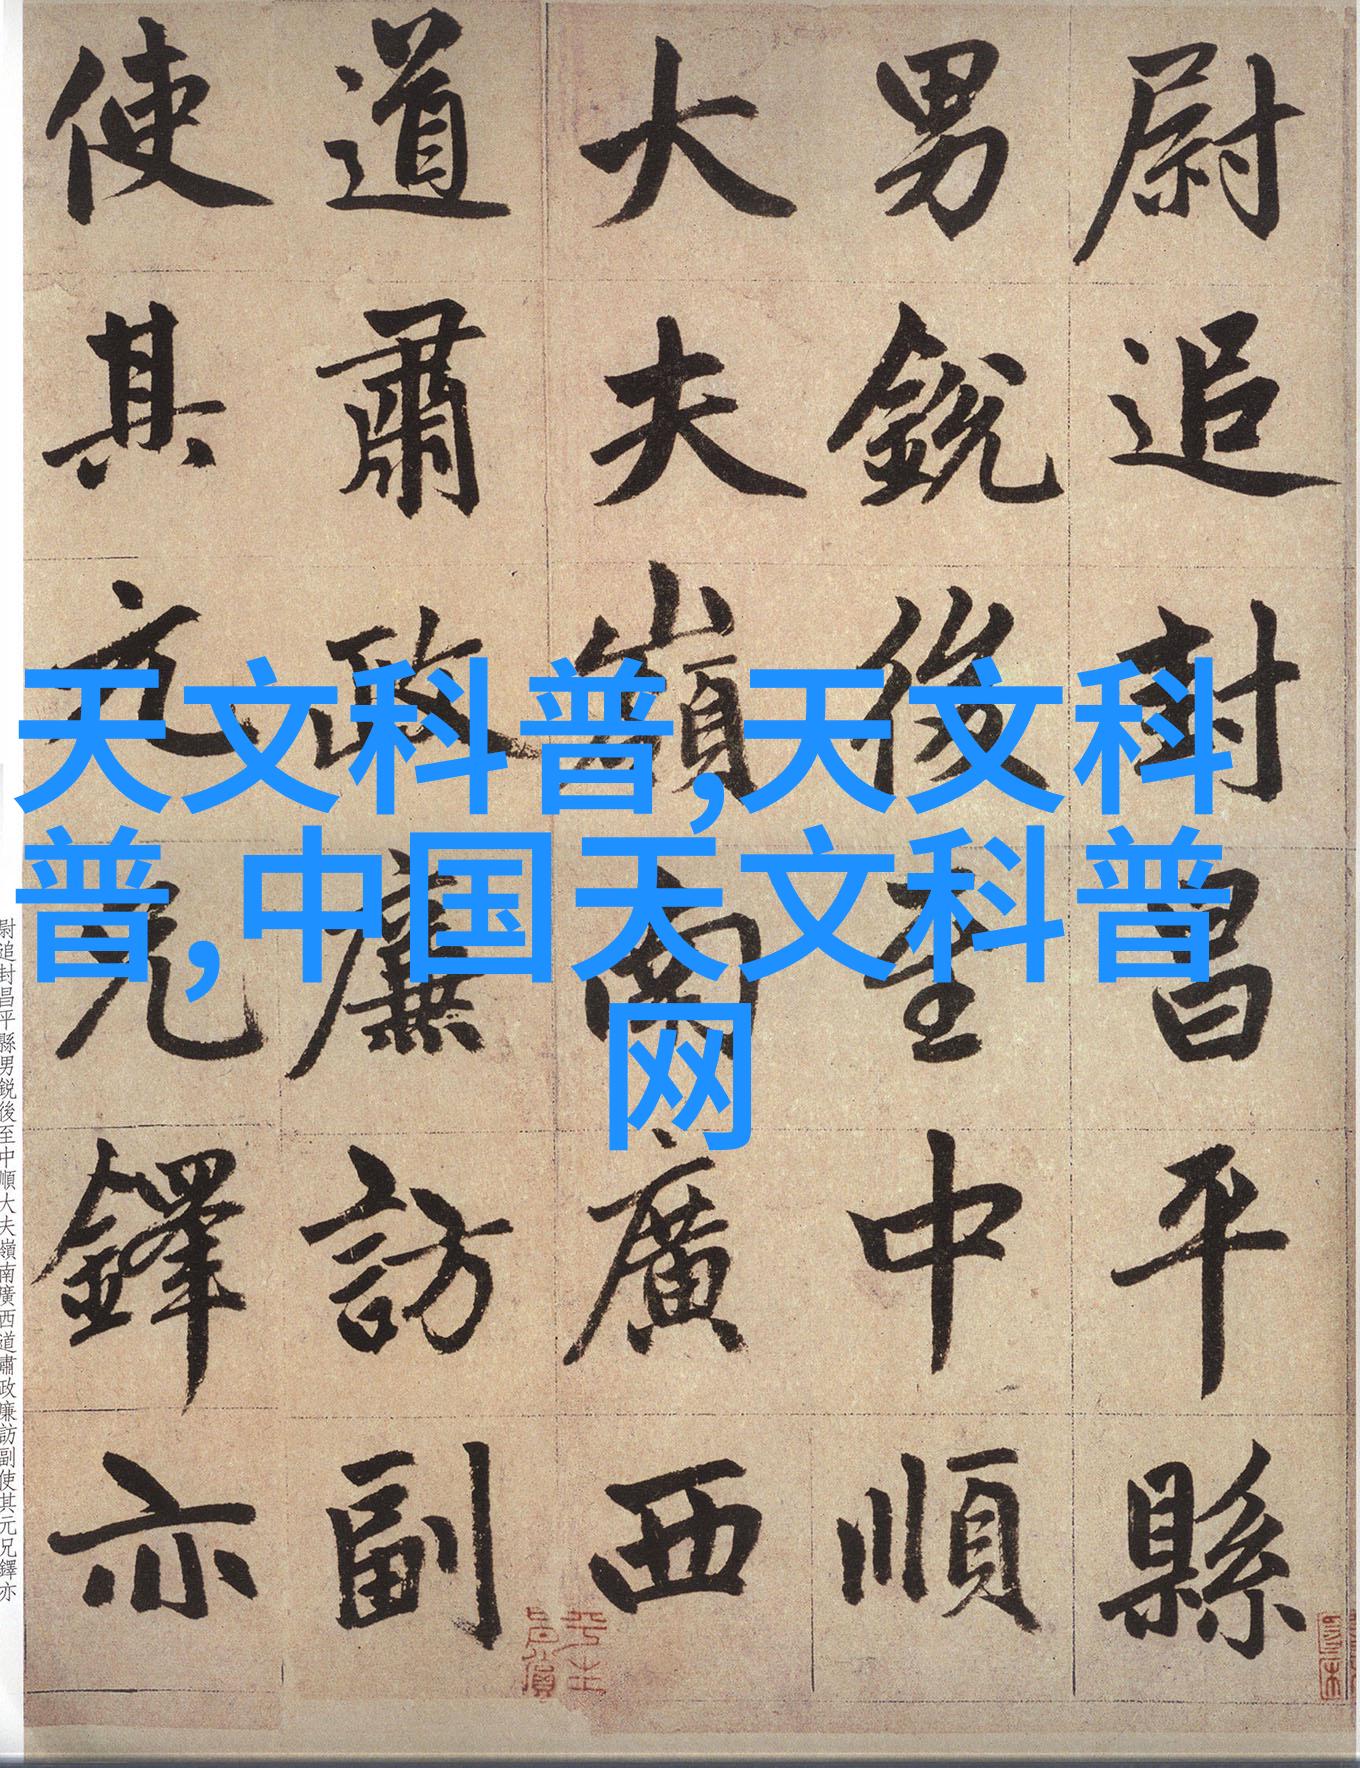 尉追封昌平縣
男銳後至中順
大夫嶺南廣西
道肅政廉訪副
使其元兄鐸亦
天文科普,天文科
普,中国天文科普
网
尉追封昌平縣男銳後至中順大夫嶺南廣西道肅政廉訪副使其元兄鐸亦